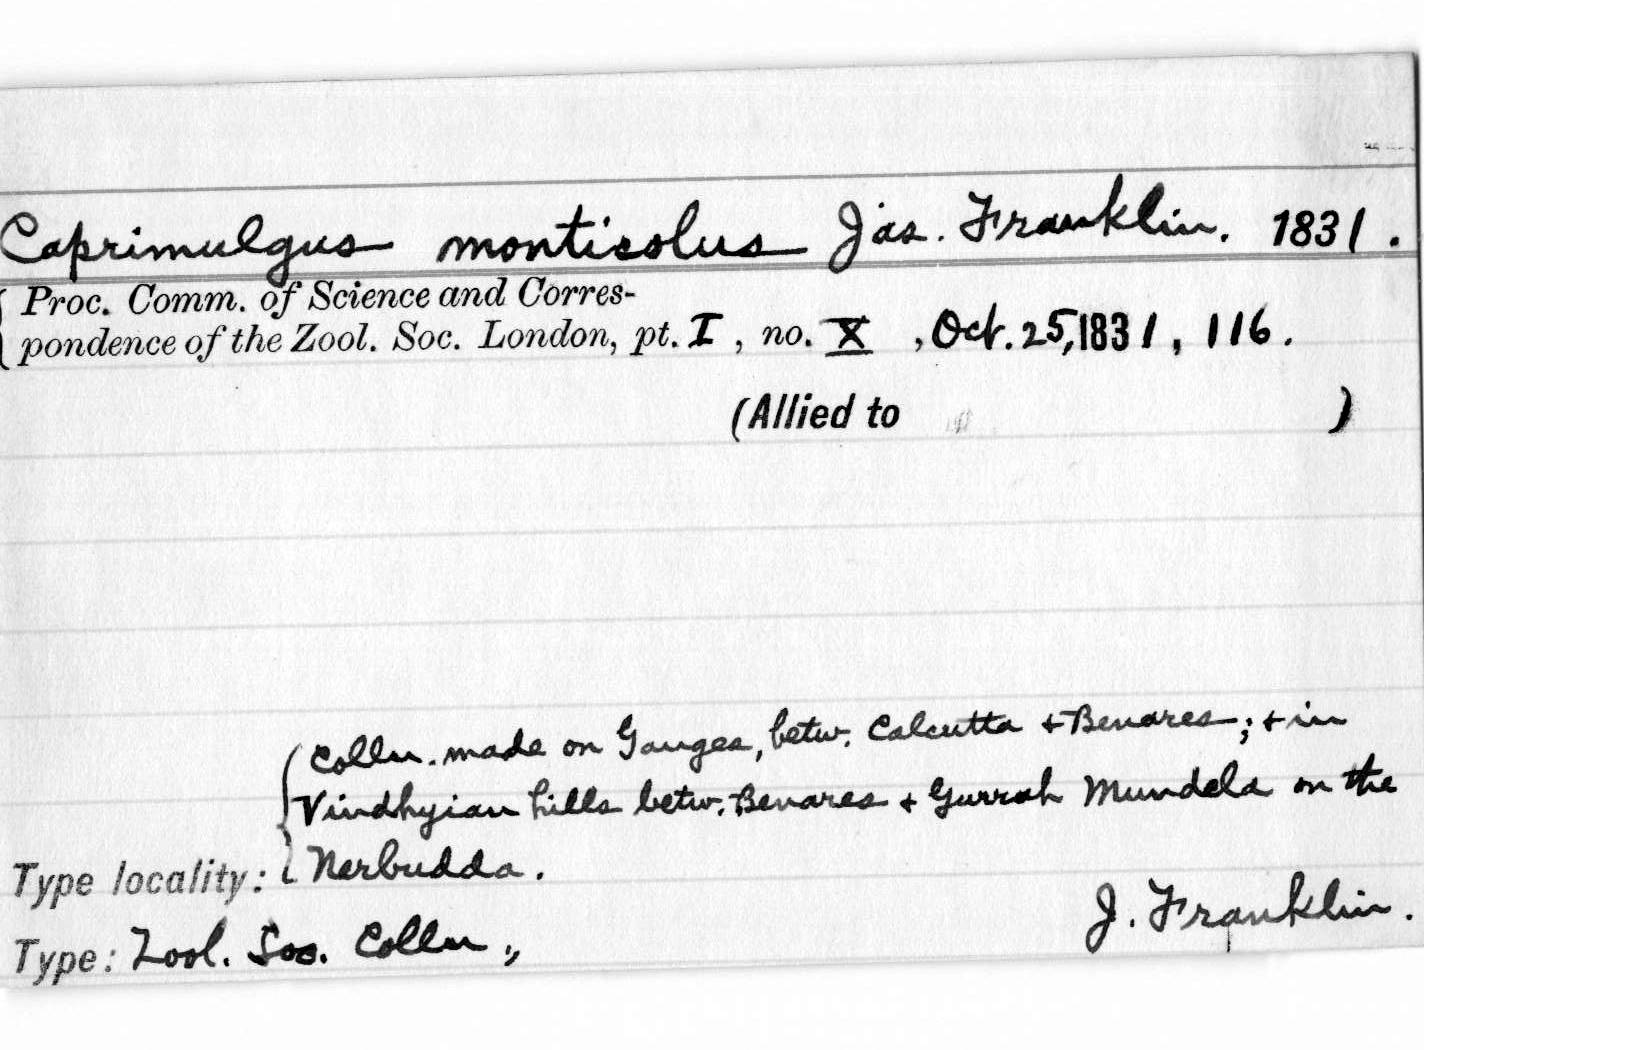 Caprimulgus monticolus Jas. Franklin. 1831.
Proc. Comm. of Science and Corres-
pondence of the Zool. Soc. London, pt. I, no. X, Oct. 25, 1831, 116.
(Allied to )
Colln. made on Ganges, betw. Calcutta + Benares; + in
Vindhyian hills betw. Benares + Gurrah Mundela on the
Type locality: Nerbudda.
J. Franklin.
Type: Zool. Soc. Colln.,